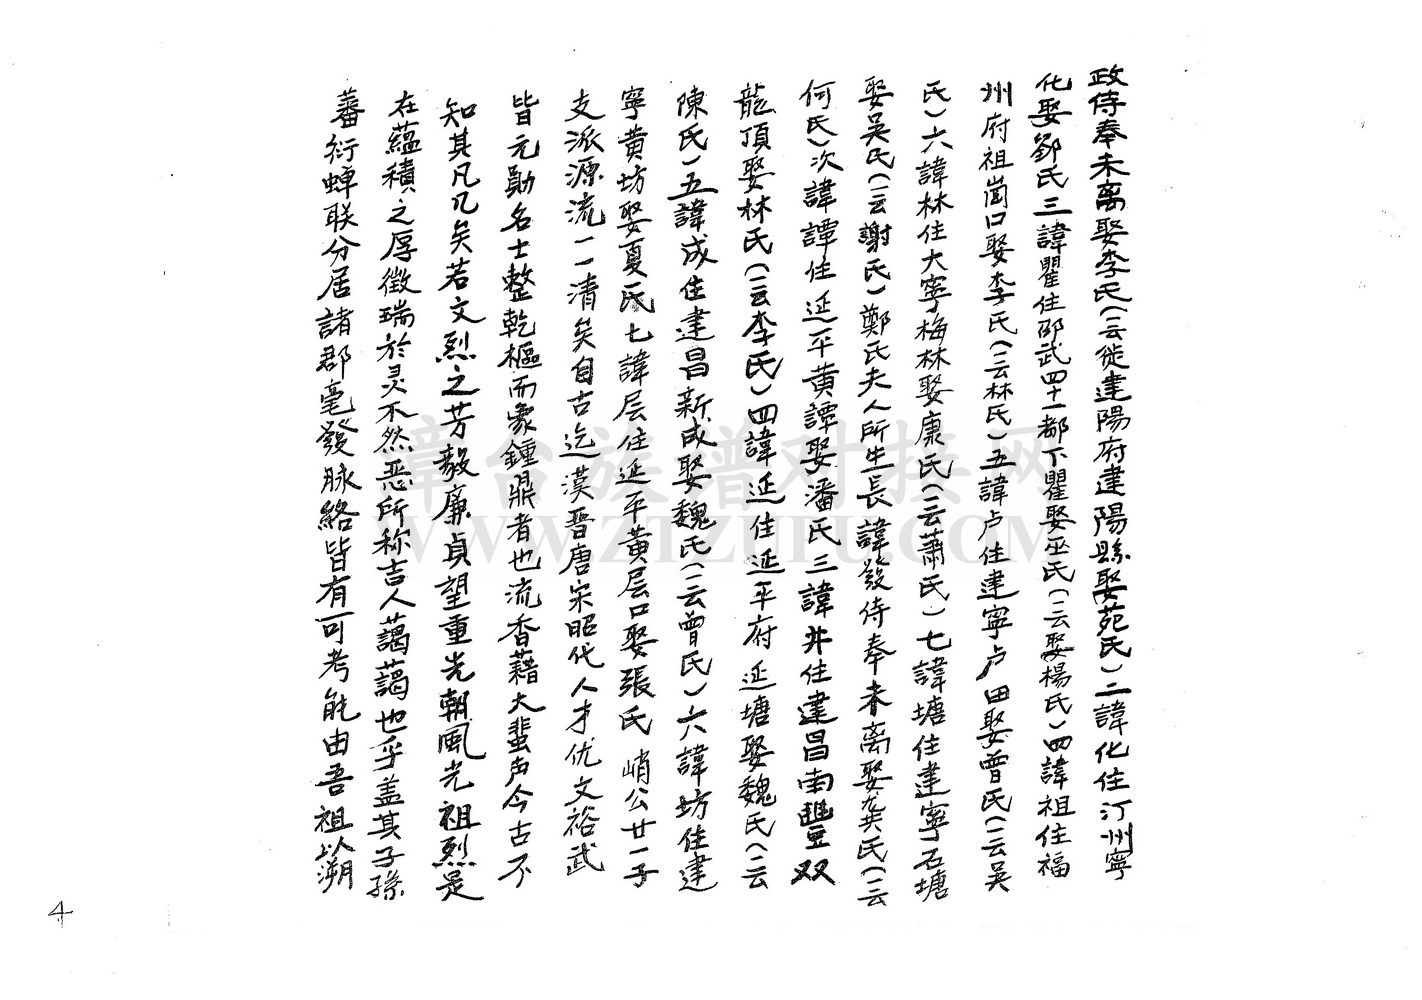 政侍奉未离娶李氏(云徙建陽府建陽縣娶苑氏)二諱化住汀州寧
化娶鄧氏三諱瞿住邵武四十一都下瞿娶巫氏(云娶楊氏)四諱祖住福
州府祖崗口娶李氏(云林氏)五諱卢住建寧卢田娶曾氏(云吴
氏)六諱林住大寧梅林娶康氏(云蕭氏)七諱塘住建寧石塘
娶吴氏(云謝氏)鄭氏夫人所生長諱發侍奉未离娶龚氏(云
何氏)次諱譚住延平黄譚娶潘氏三諱井住建昌南豐双
龍頂娶林氏(云李氏)四諱延住延平府延塘娶魏氏(云
陳氏)五諱成住建昌新成娶魏氏(云曾氏)六諱坊住建
寧黄坊娶夏氏七諱层住延平黄层口娶張氏峭公廿一子
支派源流一一清矣自古迄漢晋唐宋昭代人才优文裕武
皆元勛名士整乾樞而象鍾鼎者也流香藉大蜚声今古不
知其凡几矣若文烈之芳毅廉貞望重光朝風光祖烈是
在蘊積之厚徵瑞於灵不然恶所称吉人藹藹也乎盖其子孫
蕃衍蝉联分居諸郡毫發脉絡皆有可考能由吾祖以溯
4
章台族譜对接网
WWW.ZTZUPU.COM